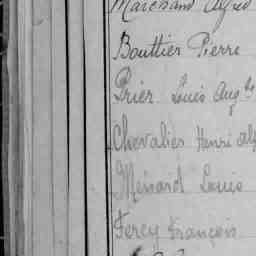 Marchand Alfred
Bouttier Pierre
Prier Louis Aug
Chevalier Henri
Ménard Louis
Fercy François